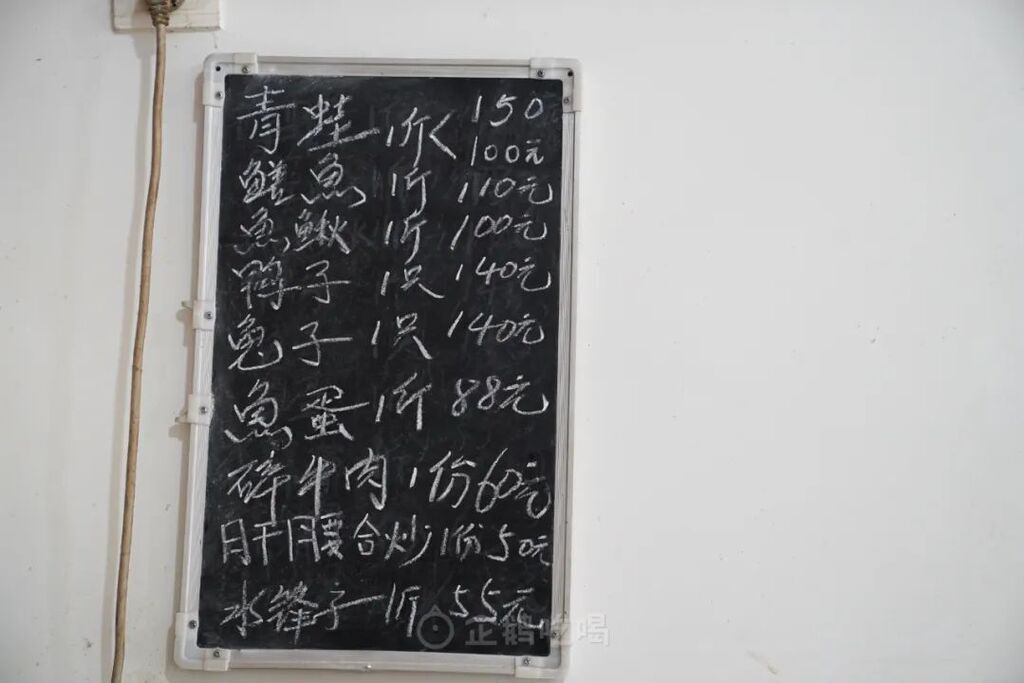 青蛙1斤<150
100元
鳝魚1斤110元
魚鳅1斤100元
鸭子1只140元
兔子1只140元
魚蛋1斤88元
碎牛肉1份60元
肝腰合炒1份50元
水锋子1斤55元
企鹅吃喝